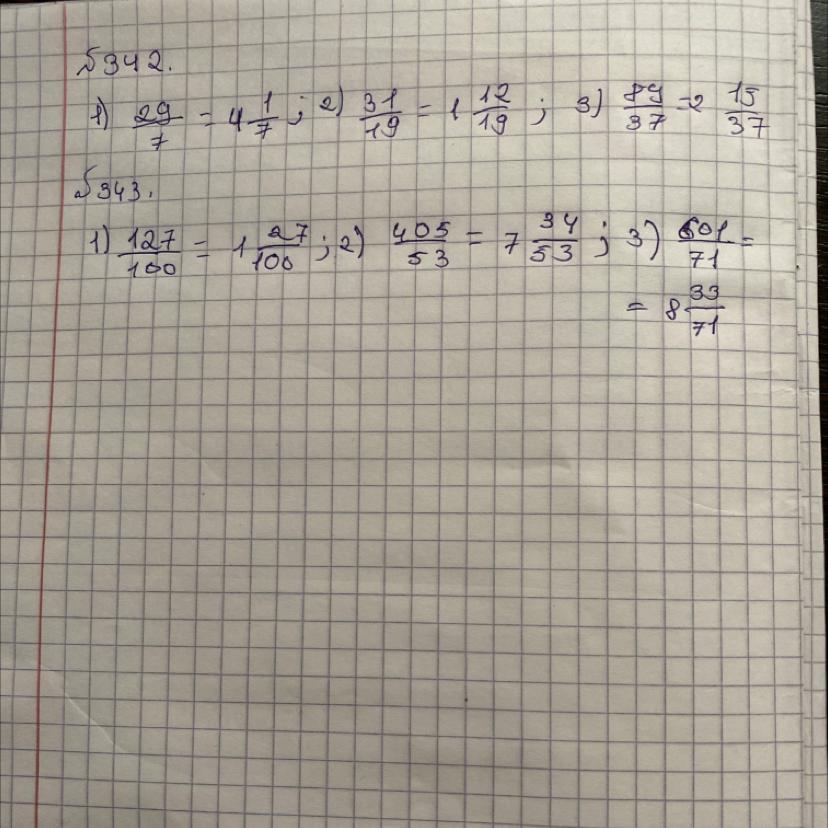 №342.
1) 29/7 = 4 1/7 ; 2) 31/19 = 1 12/19 ; 3) 89/37 = 2 15/37
№343.
1) 127/100 = 1 27/100 ; 2) 405/53 = 7 34/53 ; 3) 601/71 =
= 8 33/71